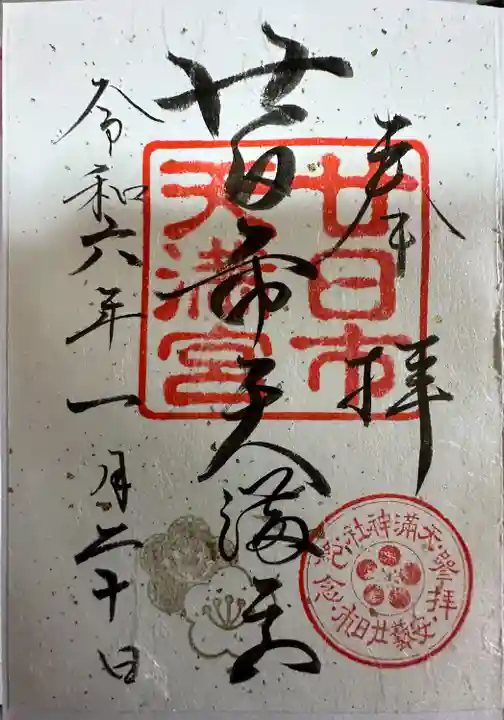 奉拝
廿日市天満宮
令和六年一月二十日
廿日市
天満宮
天満神社参拝紀念
安藝廿日市